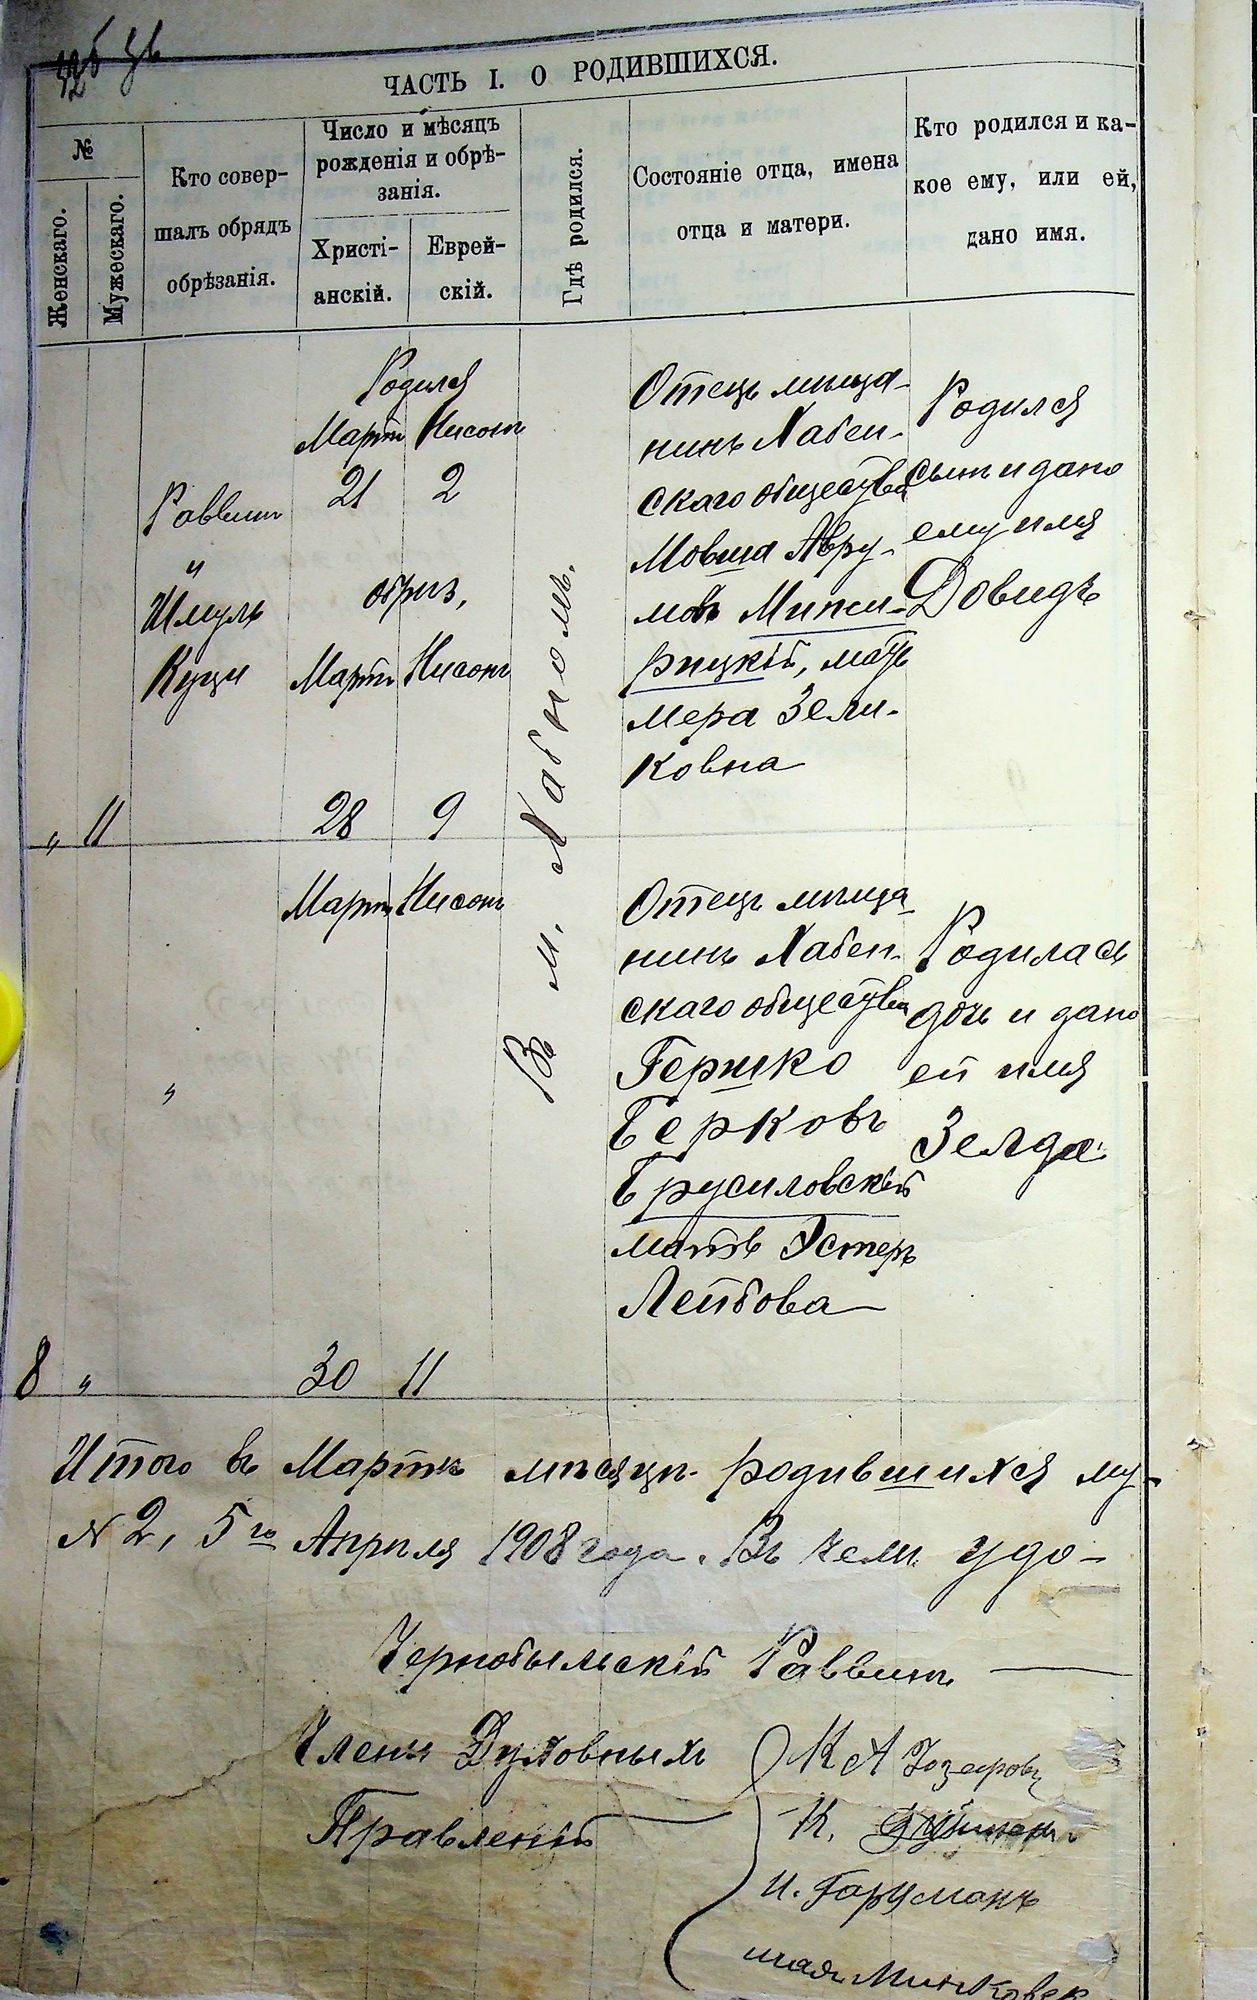 ЧАСТЬ I. О РОДИВШИХСЯ.
№
Женскаго.
Мужескаго.
Кто совер-
шалъ обрядъ
обрѣзанія.
Число и мѣсяцъ
рожденія и обрѣ-
занія.
Христі-
анскій.
Еврей-
скій.
Гдѣ родился.
Состояніе отца, имена
отца и матери.
Кто родился и ка-
кое ему, или ей,
дано имя.
" 11
Раввинъ
и
Шмуль
Куци
Родился
Мартъ Нисонъ
21 2
обрѣз,
Мартъ Нисонъ
28 9
В м. Хабномъ.
Отецъ мѣща-
нинъ Хабен-
скаго общества
Мовша Авру-
мовъ Межи-
рицкій, мать
Мера Зели-
ковна
Родился
сынъ и дано
ему имя
Довидъ
8 "
"
Мартъ Нисонъ
30 11
Отецъ мѣща-
нинъ Хабен-
скаго общества
Гершко
Берковъ
Брусиловскій
мать Эстеръ
Лейбова
Родилась
дочь и дано
ей имя
Зелда
Итого въ Мартѣ мѣсяцѣ родившихся му-
№ 2, 5го Апрѣля 1908 года. Въ чемъ удо-
Чернобыльскій Раввинъ
Члены Духовныхъ
Правленій
И. Гарцманъ